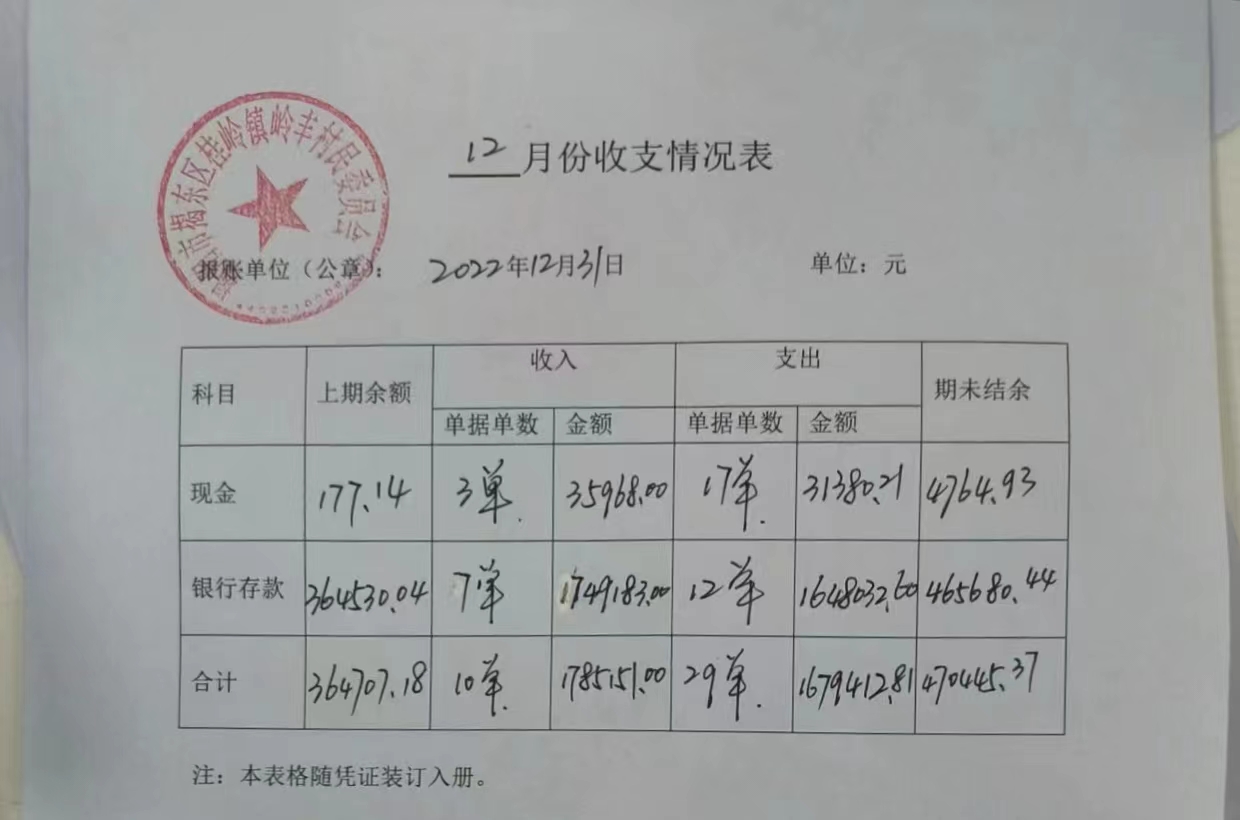 市揭东区桂岭镇岭丰村民委员会
12月份收支情况表
报账单位（公章）： 2022年12月31日 单位：元
科目 上期余额 收入 支出 期未结余
单据单数 金额 单据单数 金额
现金 177.14 3单. 35968.00 17单. 31380.21 4764.93
银行存款 364530.04 7单 1749183.00 12单 1648032.60 465680.44
合计 364707.18 10单. 1785151.00 29单. 1679412.81 470445.37
注：本表格随凭证装订入册。